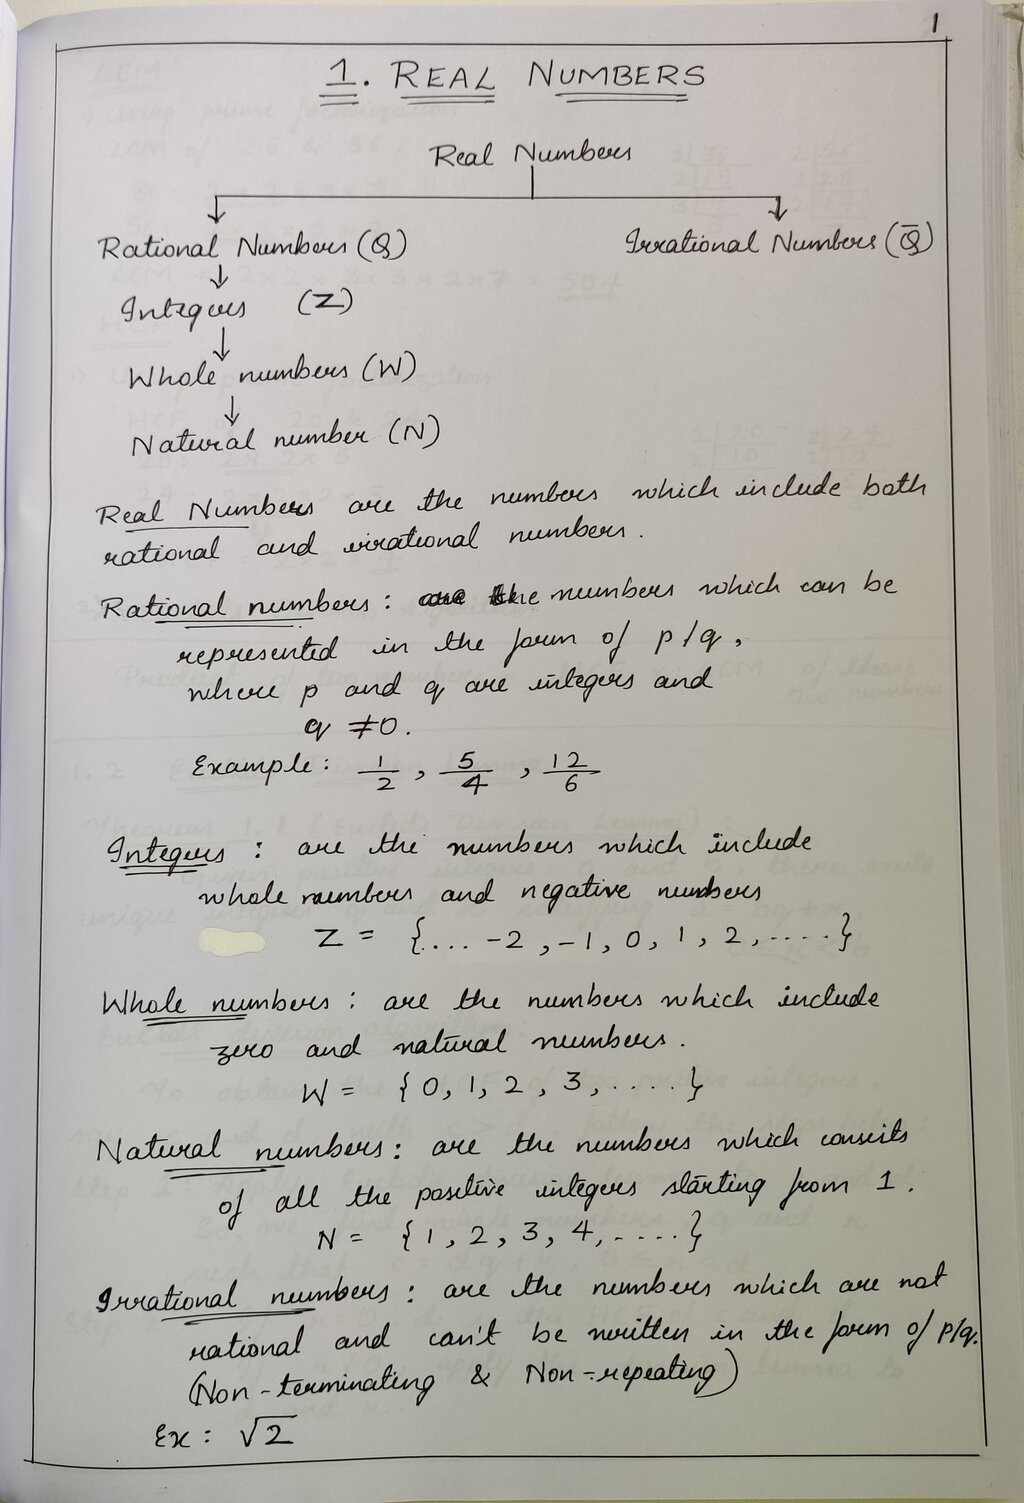 1
1. REAL NUMBERS
Real Numbers
Rational Numbers (Q) Irrational Numbers (Q̅)
Integers (Z)
Whole numbers (W)
Natural number (N)
Real Numbers are the numbers which include both
rational and irrational numbers.
Rational numbers : are the numbers which can be
represented in the form of p/q,
where p and q are integers and
q ≠ 0.
Example : 1/2, 5/4, 12/6
Integers : are the numbers which include
whole numbers and negative numbers
Z = {.... -2, -1, 0, 1, 2, .....}
Whole numbers : are the numbers which include
zero and natural numbers.
W = {0, 1, 2, 3, .....}
Natural numbers : are the numbers which consists
of all the positive integers starting from 1.
N = {1, 2, 3, 4, .....}
Irrational numbers : are the numbers which are not
rational and can't be written in the form of p/q.
(Non-terminating & Non-repeating)
Ex : √2